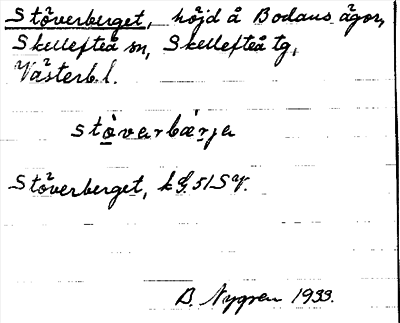 Stöverberget, höjd å Bodans ägor,
Skellefteå sn, Skellefteå tg,
Västerb. l.
stöverbærja
Stöverberget, k 9. 51 SV.
B. Nygren 1933.